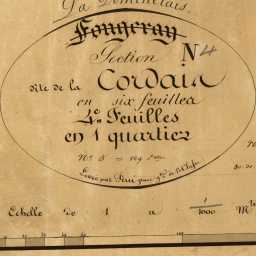 La Dominelais.
Fougeray
Section N 4
dite de la Cordais
en six feuilles
4e. Feuilles
en 1 quartier
Echelle de 1 a 1/1000 M